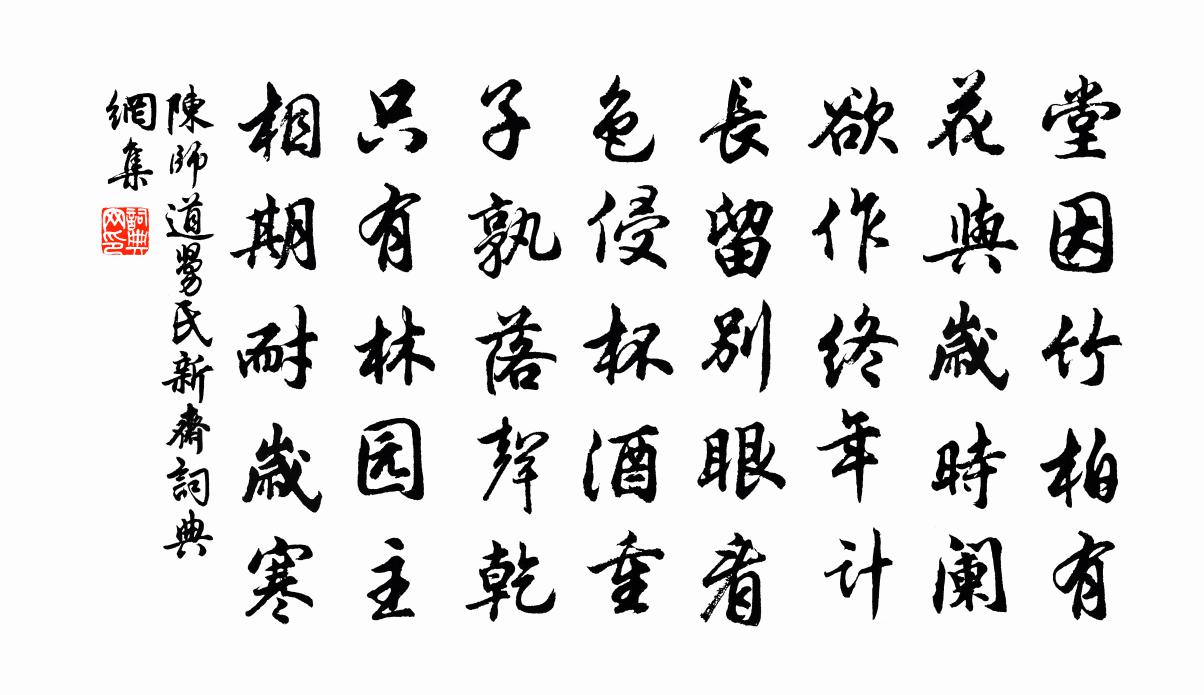 堂因竹柏有
花與歲時阑
欲作终年计
長留别眼看
色侵杯酒重
子孰落聲乾
只有林园主
相期耐歲寒
陳師道舅氏新齋詞典
網集
詞典
网印